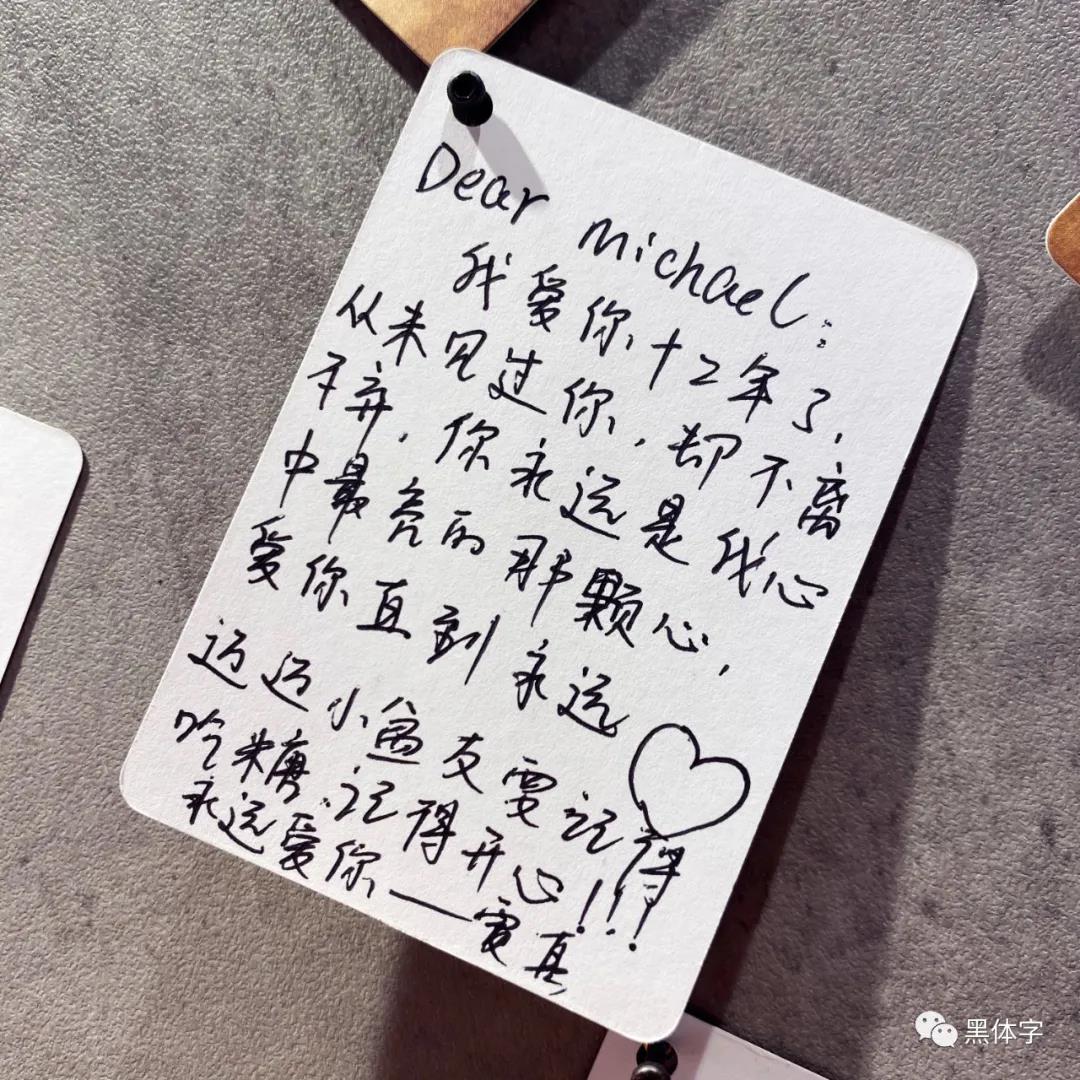 Dear Michael:
我爱你十二年了,
从未见过你,却不离
不弃,你永远是我心
中最亮的那颗心,
爱你直到永远
迈迈小盆友要记得
吃糖,记得开心!!!
永远爱你——
黑体字